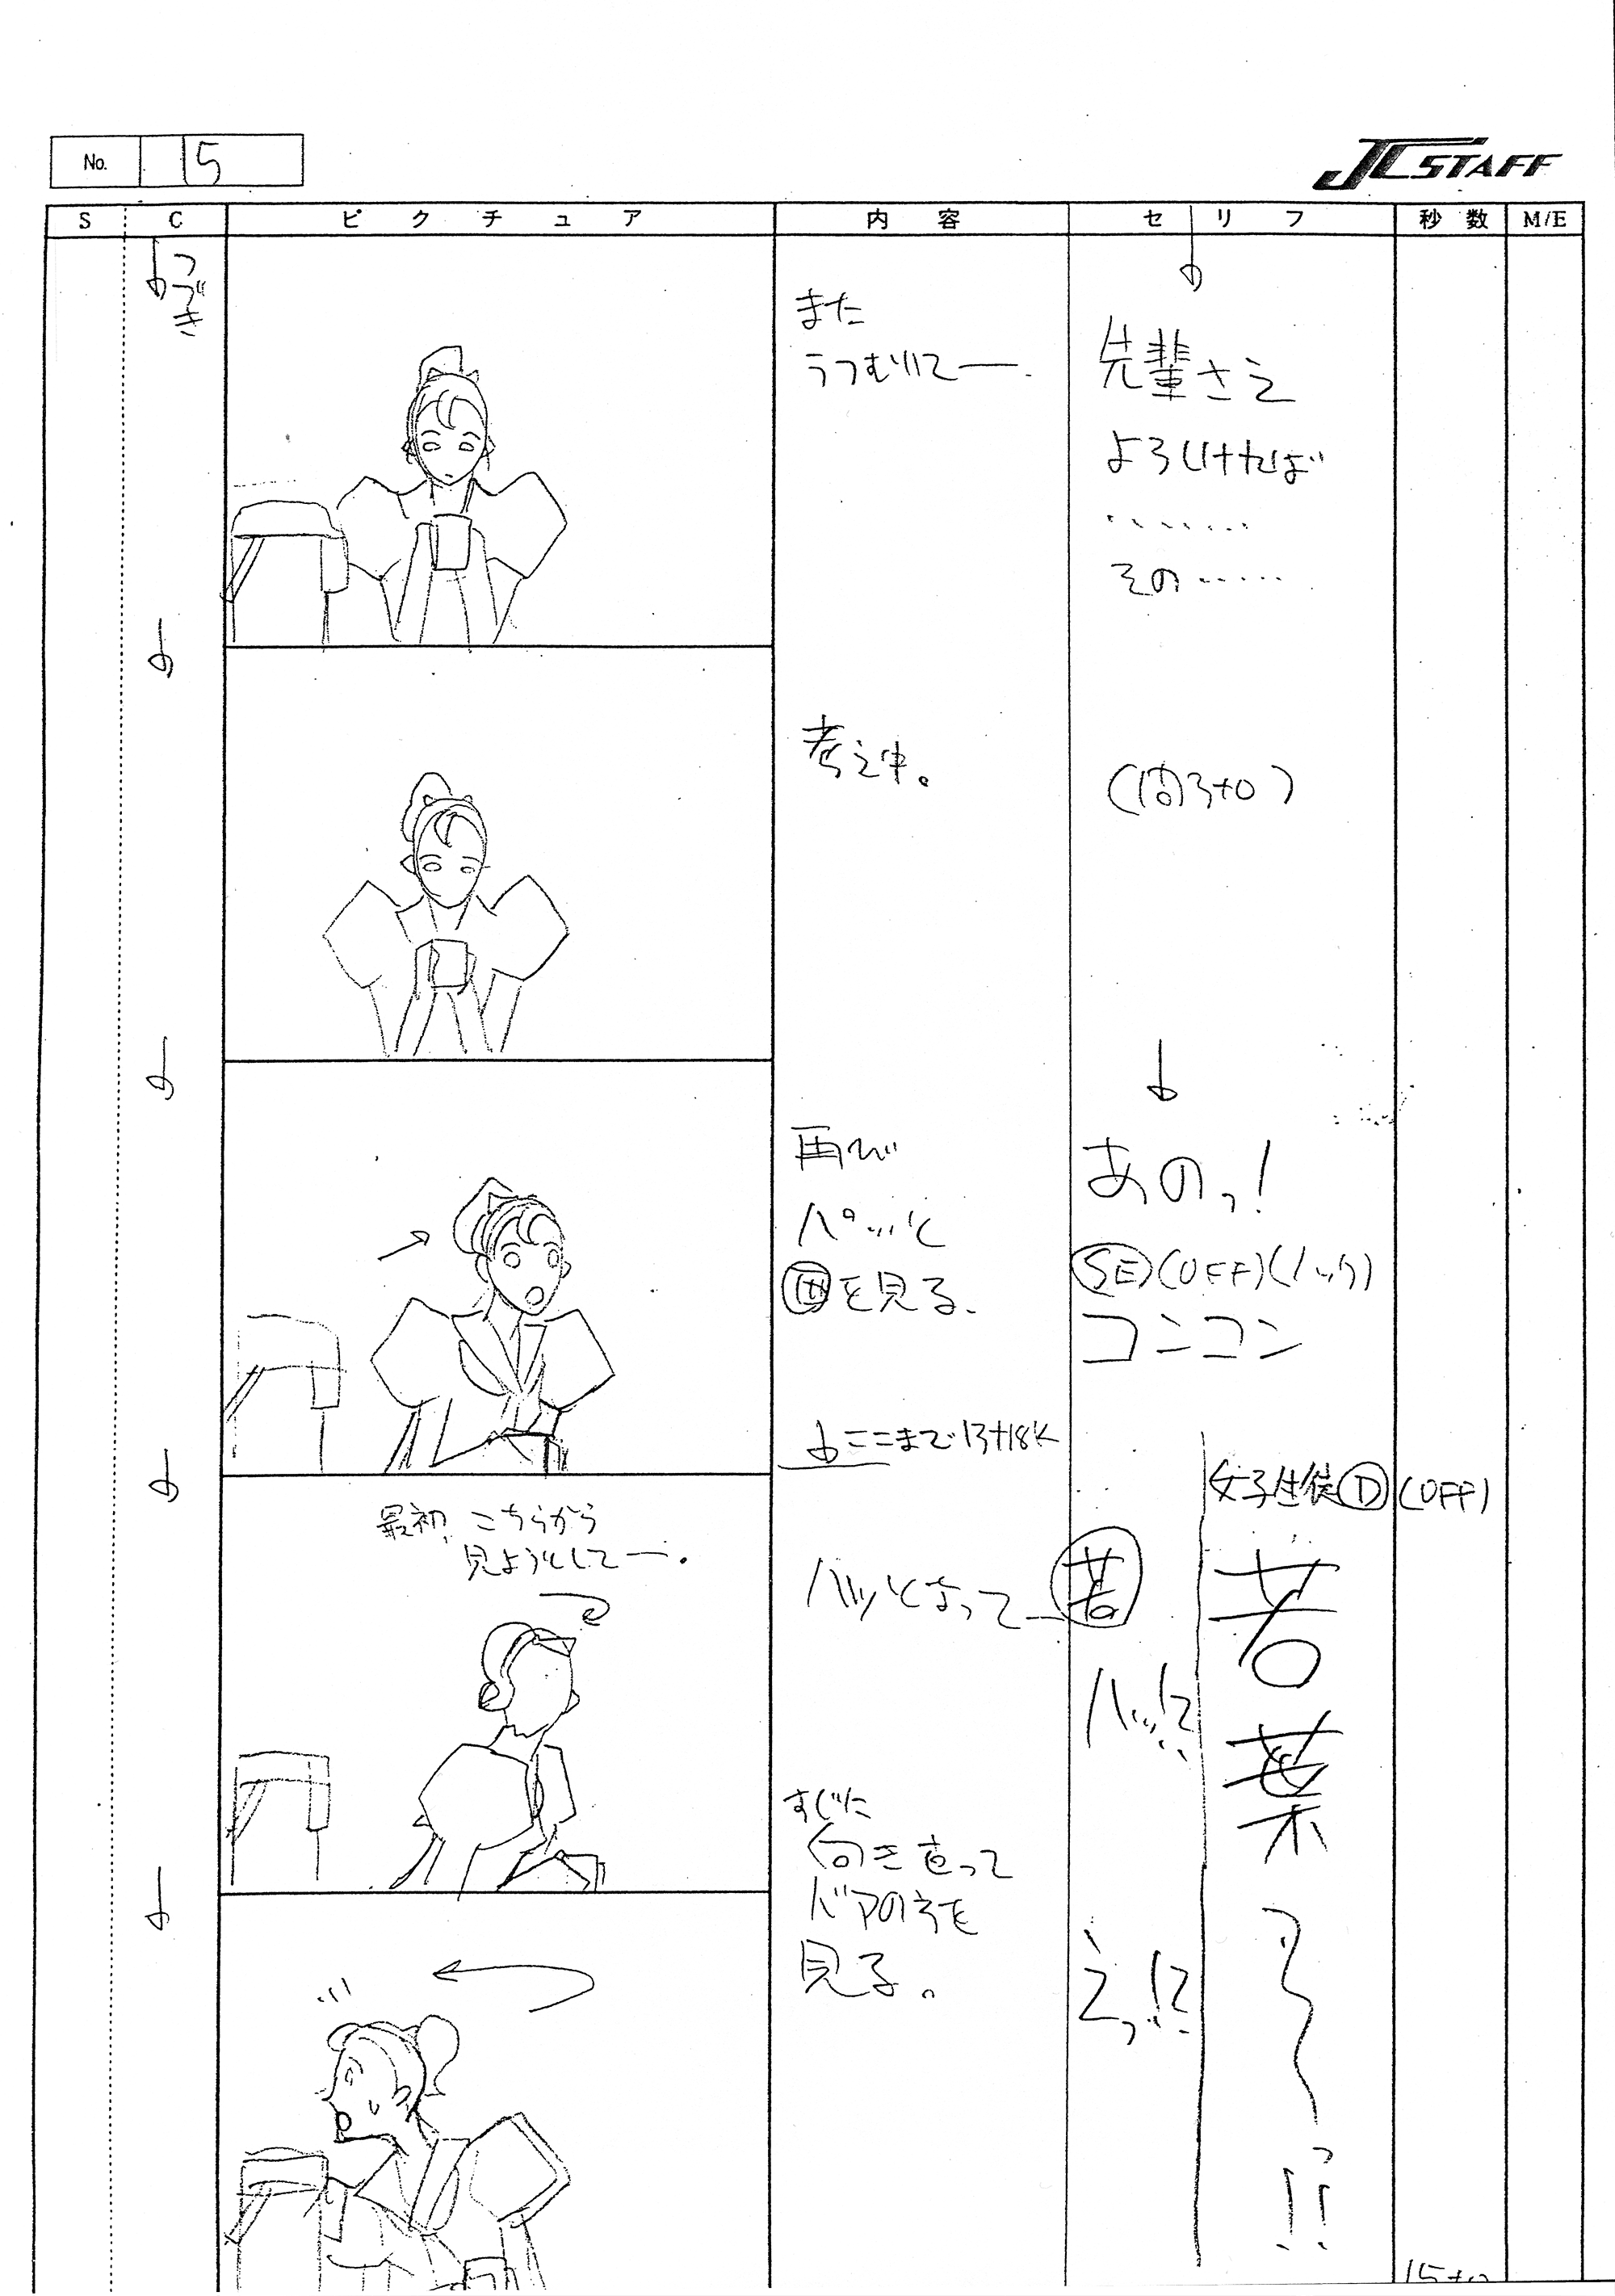 No. 15
JC STAFF
S C ピクチュア 内容 セリフ 秒数 M/E
つづき
また
うつむいて――.
先輩さえ
よろしければ
‥‥‥‥
その‥‥‥
考え中。
(間3+0)
再び
パッと
を見る.
あのっ!
SE (OFF) (ノック)
コンコン
ここまで13+18K
最初、こちらから
見ようとして――.
ハッとなって―
若
ハッ!?
女子生徒D (OFF)
若葉〜っ!!
すぐに
向き直って
ドアの方を
見る。
えっ!?
15+0